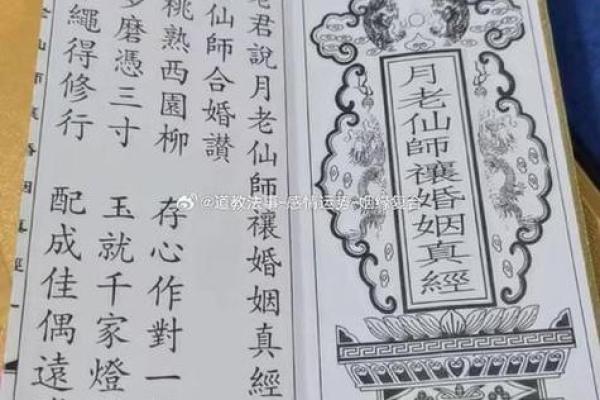 月老仙師禳婚姻真經
老君說月老仙師禳婚姻真經
仙師合婚讚
桃熟西園柳 存心作對一
多磨憑三寸 玉就千家燈
繩得修行 配成佳偶遠
仙師禳婚姻真經一
@道教法事-感情运势-姻缘复合